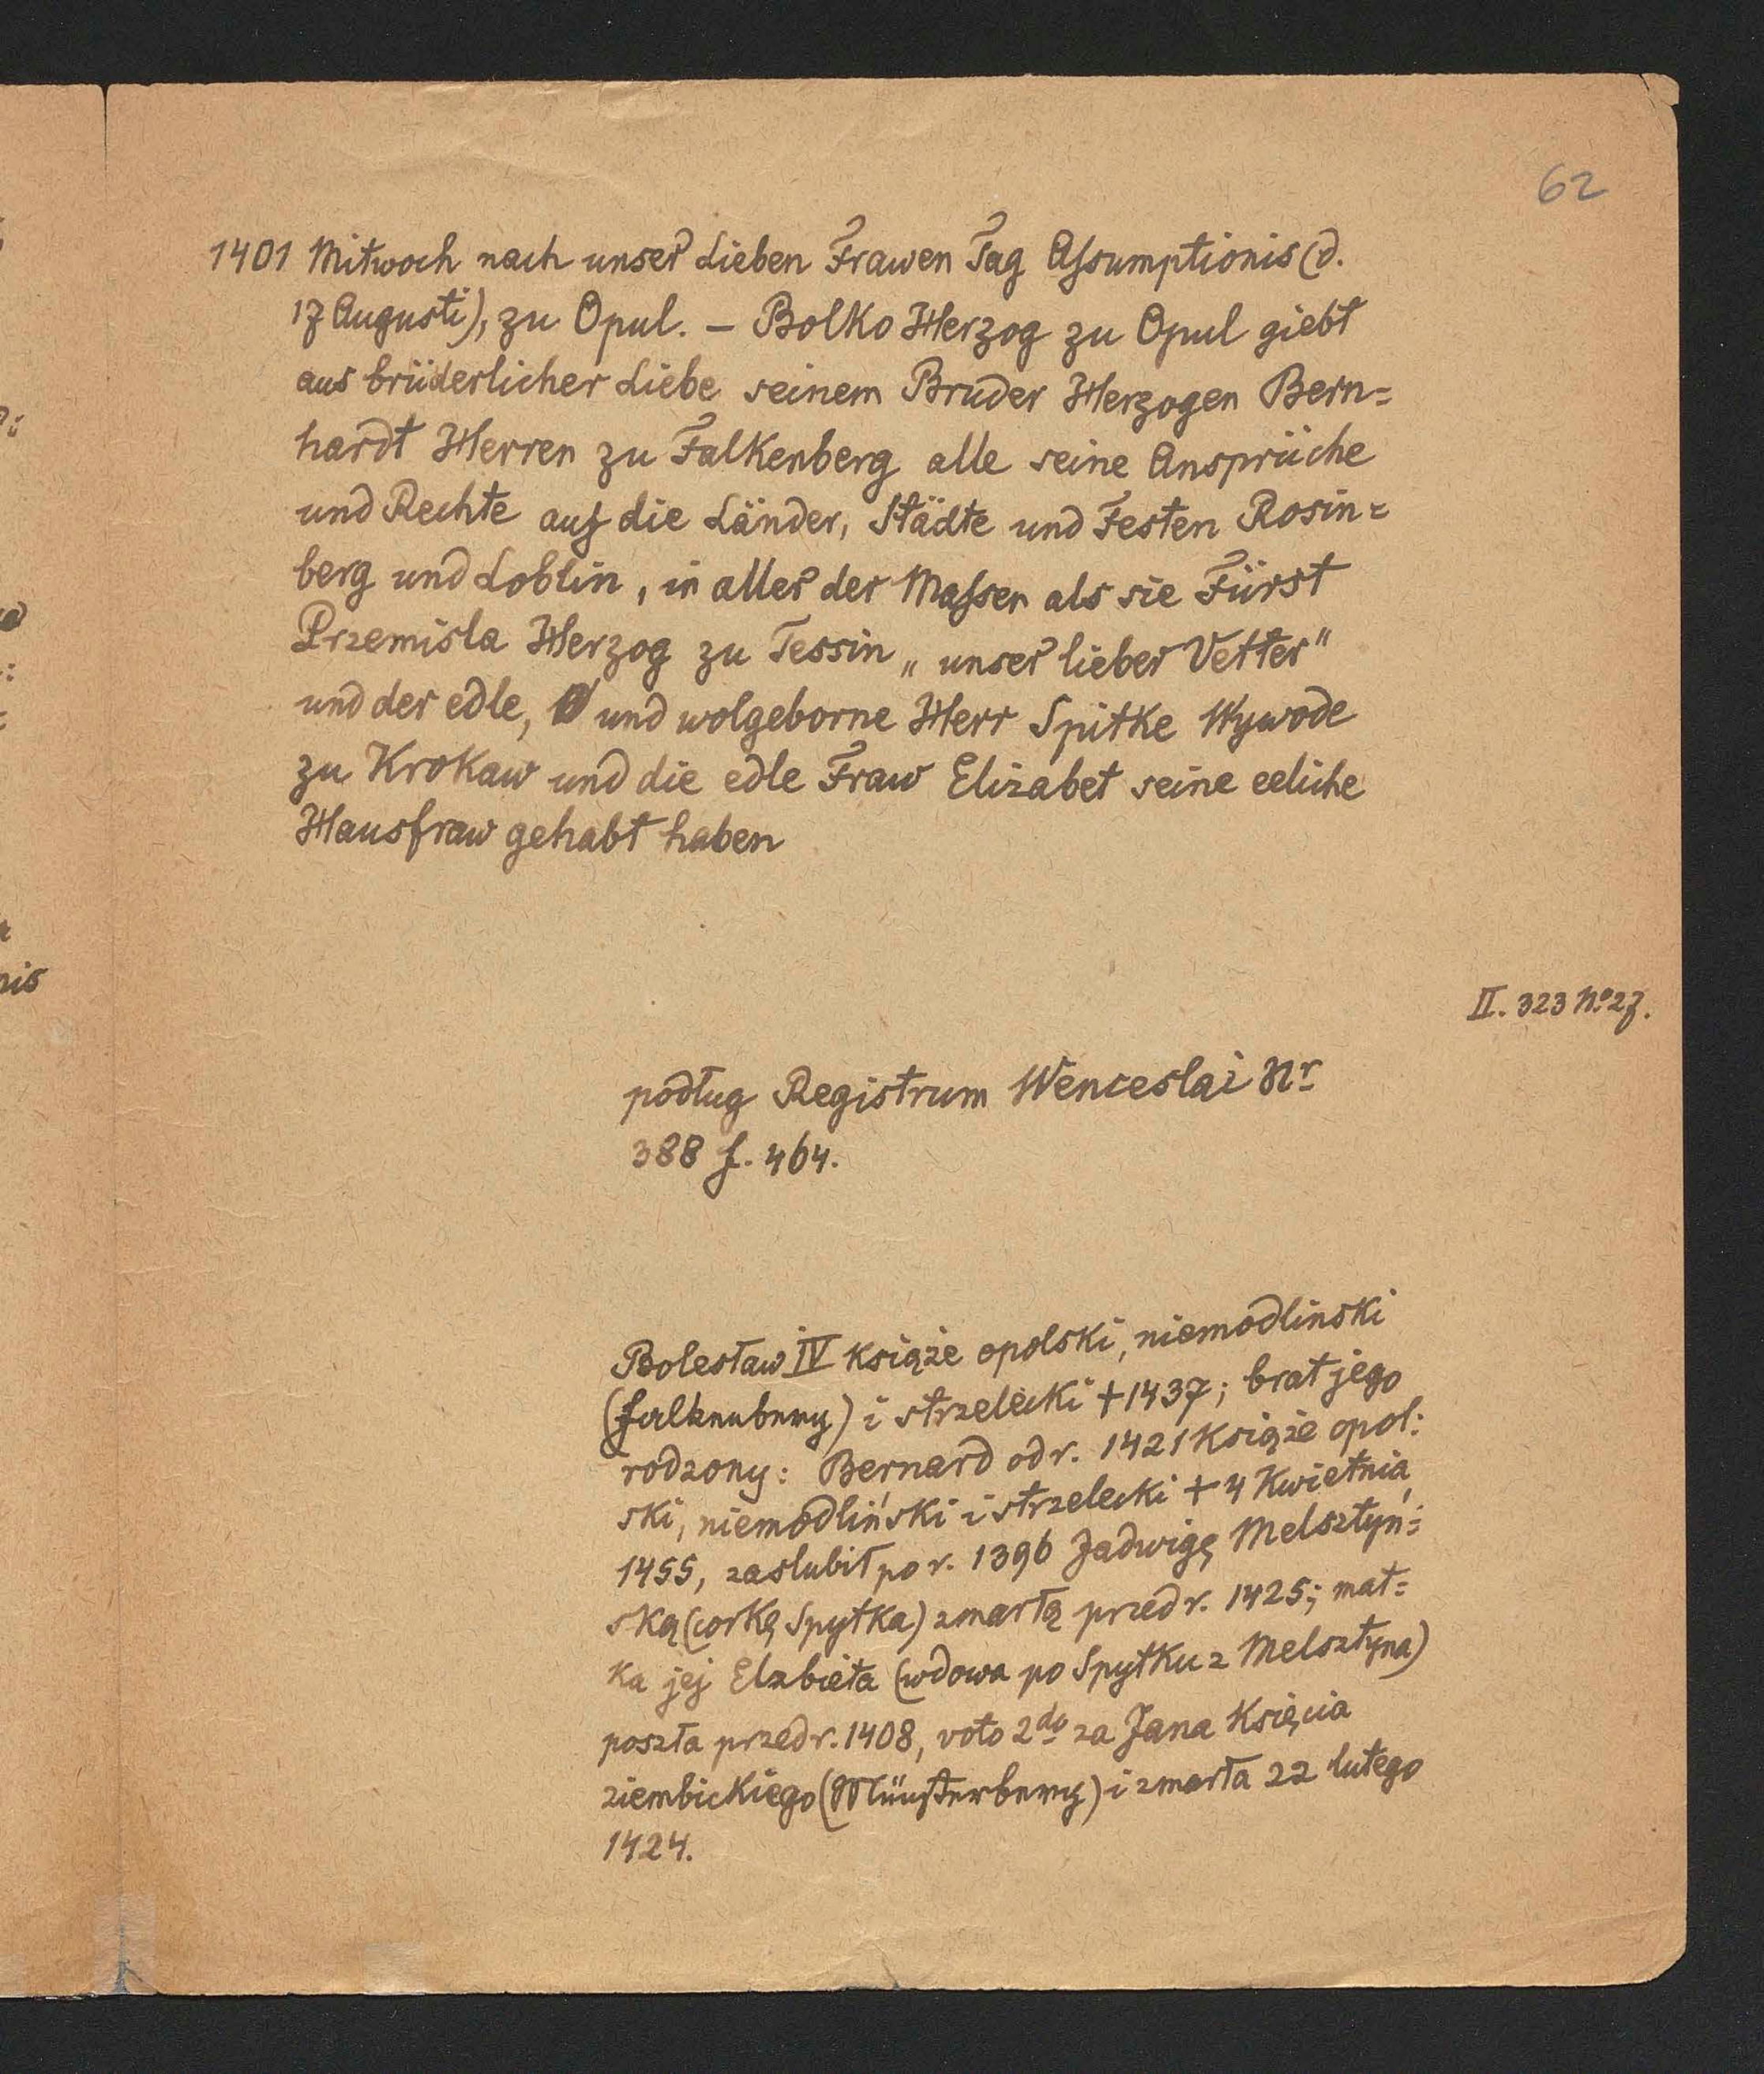 62
1401 Mitwoch nach unser Lieben Frawen Tag Assumptionis (d.
17 Augusti), zu Opul. – Bolko Herzog zu Opul giebt
aus brüderlicher Liebe seinem Bruder Herzogen Bern=
hardt Herren zu Falkenberg alle seine Ansprüche
und Rechte auf die Länder, Städte und Festen Rosin=
berg und Loblin, in aller der Massen als sie Fürst
Przemisla Herzog zu Tessin „unser lieber Vetter"
und der edle, und wolgeborne Herr Spitke Wywode
zu Krokaw und die edle Fraw Elizabet seine eeliche
Hausfraw gehabt haben
II. 323 No 27.
podług Registrum Wenceslai Nr
388 f. 464.
Bolesław IV książe opolski, niemodlinski
(Falkenberg) i strzelecki + 1437; brat jego
rodzony: Bernard od r. 1421 książe opol:
ski, niemodliński i strzelecki + 4 Kwietnia
1455, zaslubił po r. 1396 Jadwigę Melsztyń:
ską (corkę Spytka) zmarłą przed r. 1425; mat=
ka jej Elzbieta (wdowa po Spytku z Melsztyna)
poszła przed r. 1408, voto 2do za Jana Księcia
ziembickiego (Münsterberg) i zmarła 22 lutego
1424.
nis